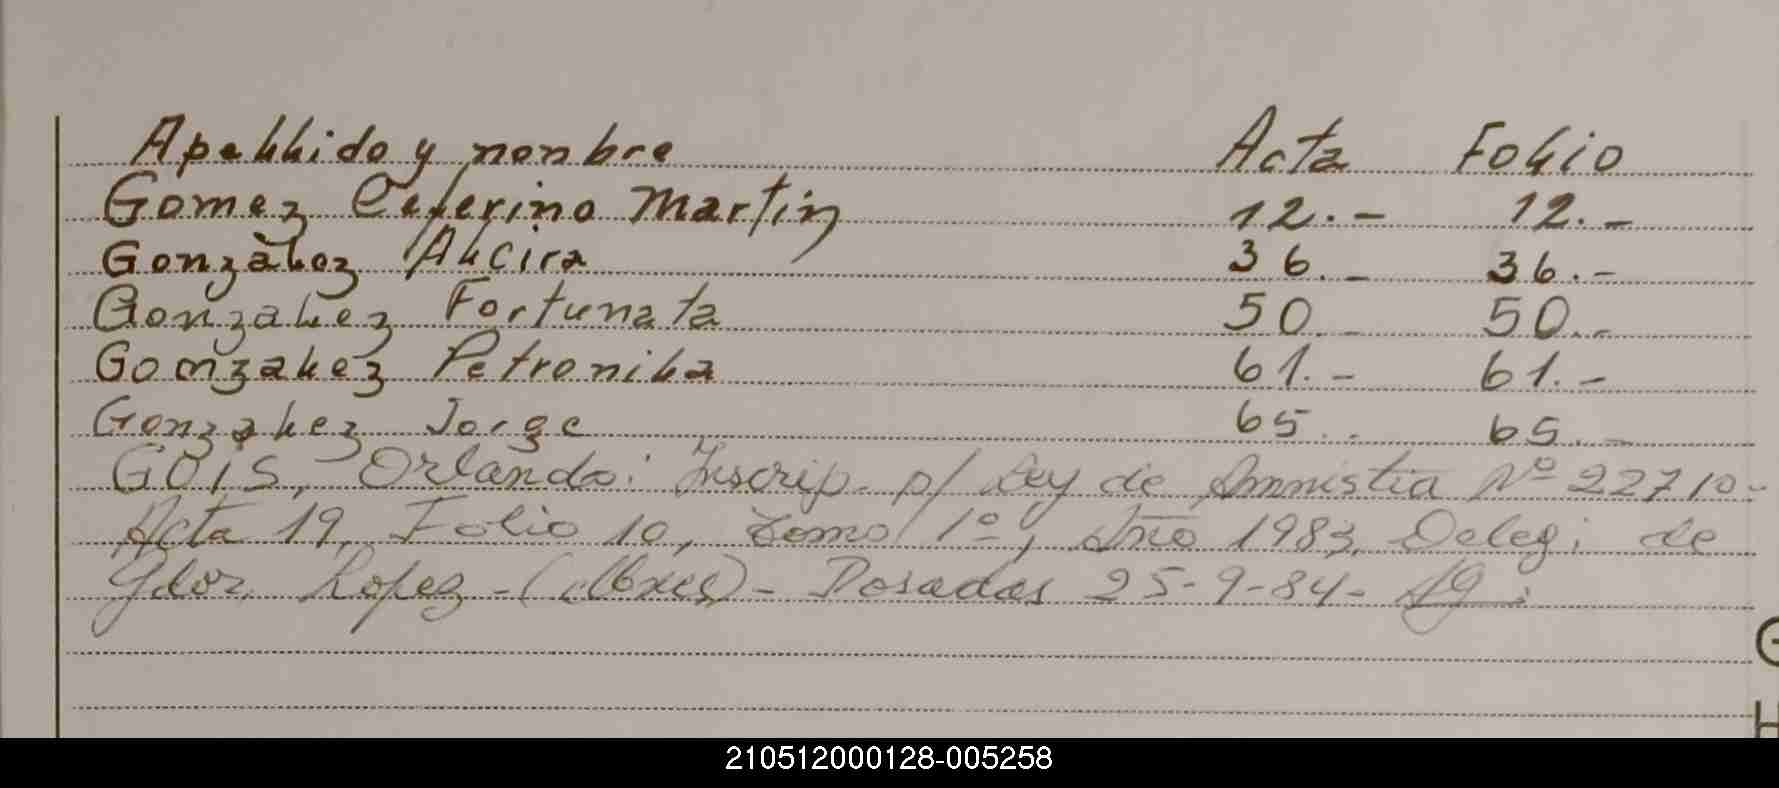 Apellido y nonbre Acta Folio
Gomez Ceferino Martin 12.- 12.-
Gonzàlez Alcira 36.- 36.-
Gonzalez Fortunata 50.- 50.-
Gonzalez Petronila 61.- 61.-
Gonzalez Jorge 65.. 65.-
GOIS, Orlando: Inscrip. p/ Ley de Amnistia Nº 22710-
Acta 19, Folio 10, Tomo 1º, Año 1983, Deleg. de
Gdor. Lopez - (Mnes) - Posadas 25-9-84-
G
H
210512000128-005258